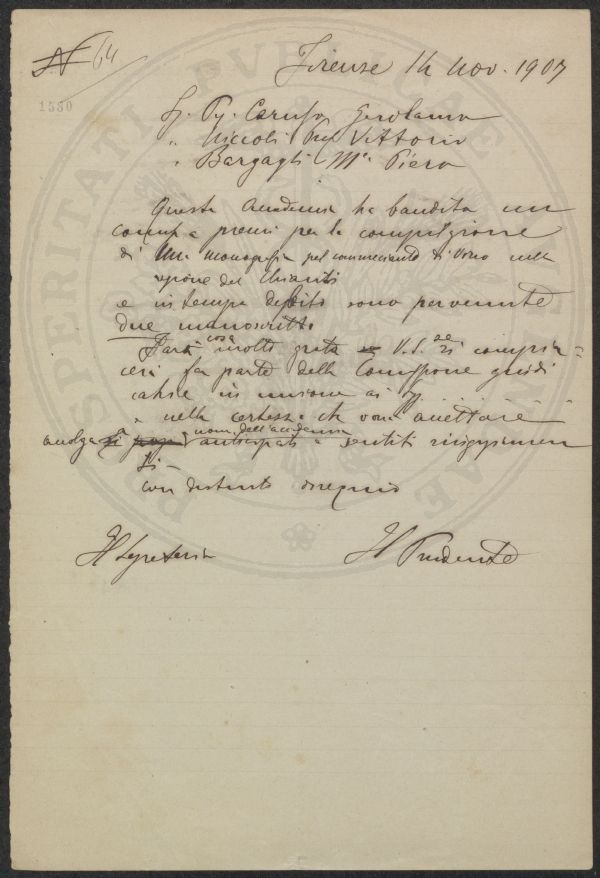 N 64
1530
Firenze 14 nov. 1907
Sg. Pr. Caruso Gerolamo
" Niccoli Vittorio
" Bargagli Mse Piero
Questa Accademia ha bandito un
concorso a premi per la compilazione
di Una monografia pel commerciante di vino nella
regione del Chianti
e in tempo debito sono pervenute
due manoscritti
Sarà cosa molto grata V. S. se compia=
cerà far parte della Commissione giudi
catrice in unione ai
e nella certezza che vorrà accettare
a nome dell'accademia
anticipati e sentiti ringraziamen
ti
con distinto ossequio
Il Segretario Il Presidente
PROSPERITATI PVBLICAE AVGENDAE